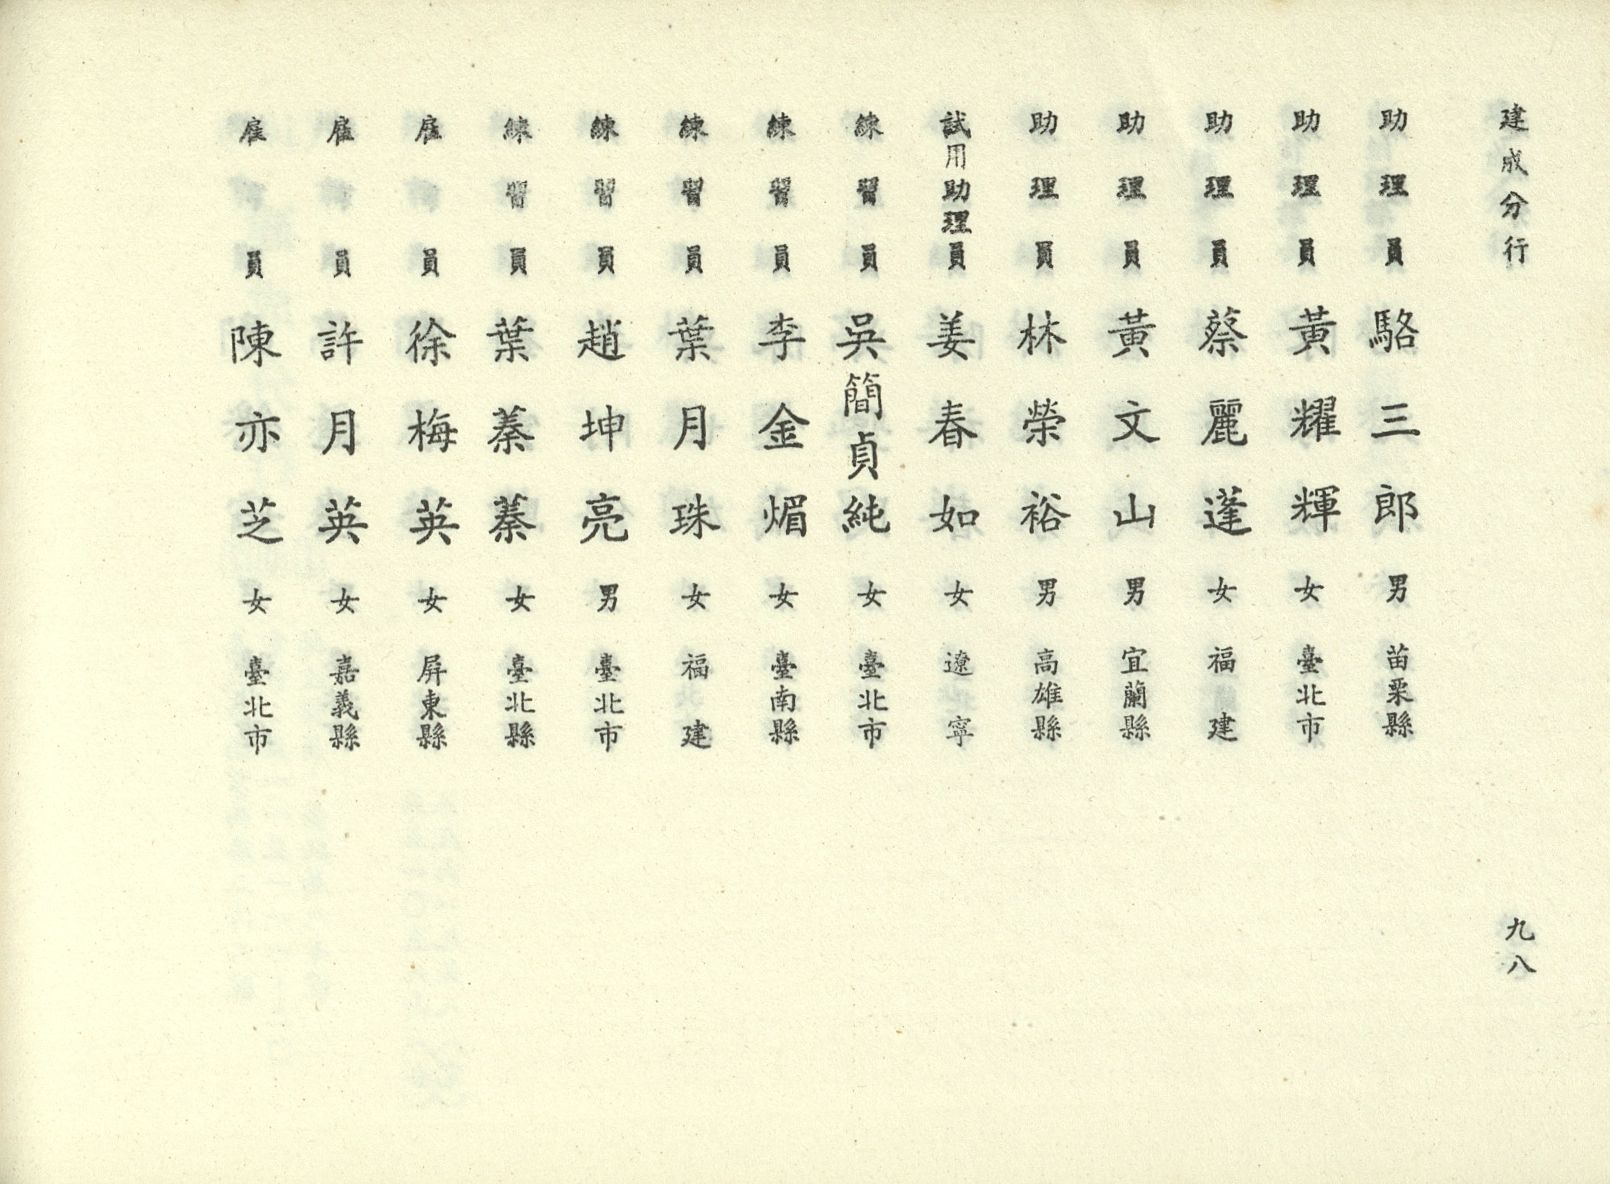 建成分行
九八
助理員 駱三郎 男 苗栗縣
助理員 黃耀輝 女 臺北市
助理員 蔡麗蓬 女 福建
助理員 黃文山 男 宜蘭縣
助理員 林榮裕 男 高雄縣
試用助理員 姜春如 女 遼寧
練習員 吳簡貞純 女 臺北市
練習員 李金媚 女 臺南縣
練習員 葉月珠 女 福建
練習員 趙坤亮 男 臺北市
練習員 葉蓁蓁 女 臺北縣
雇員 徐梅英 女 屏東縣
雇員 許月英 女 嘉義縣
雇員 陳亦芝 女 臺北市